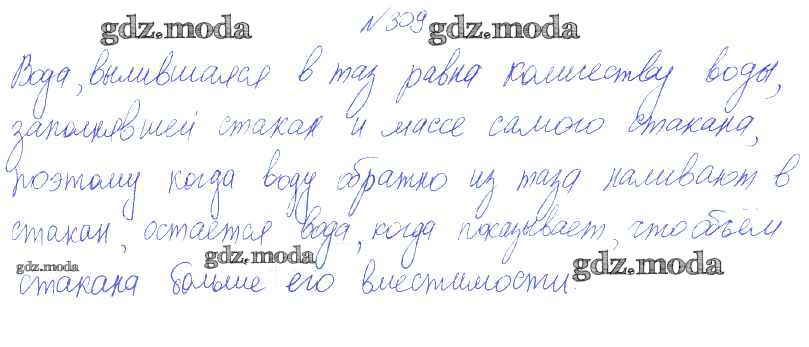 №309
gdz.moda gdz.moda
Вода, вылившаяся в таз равна количеству воды,
заполнявшей стакан и массе самого стакана,
поэтому когда воду обратно из таза наливают в
стакан, остаётся вода, когда показывает, что объём
gdz.moda gdz.moda gdz.moda
стакана больше его вместимости.